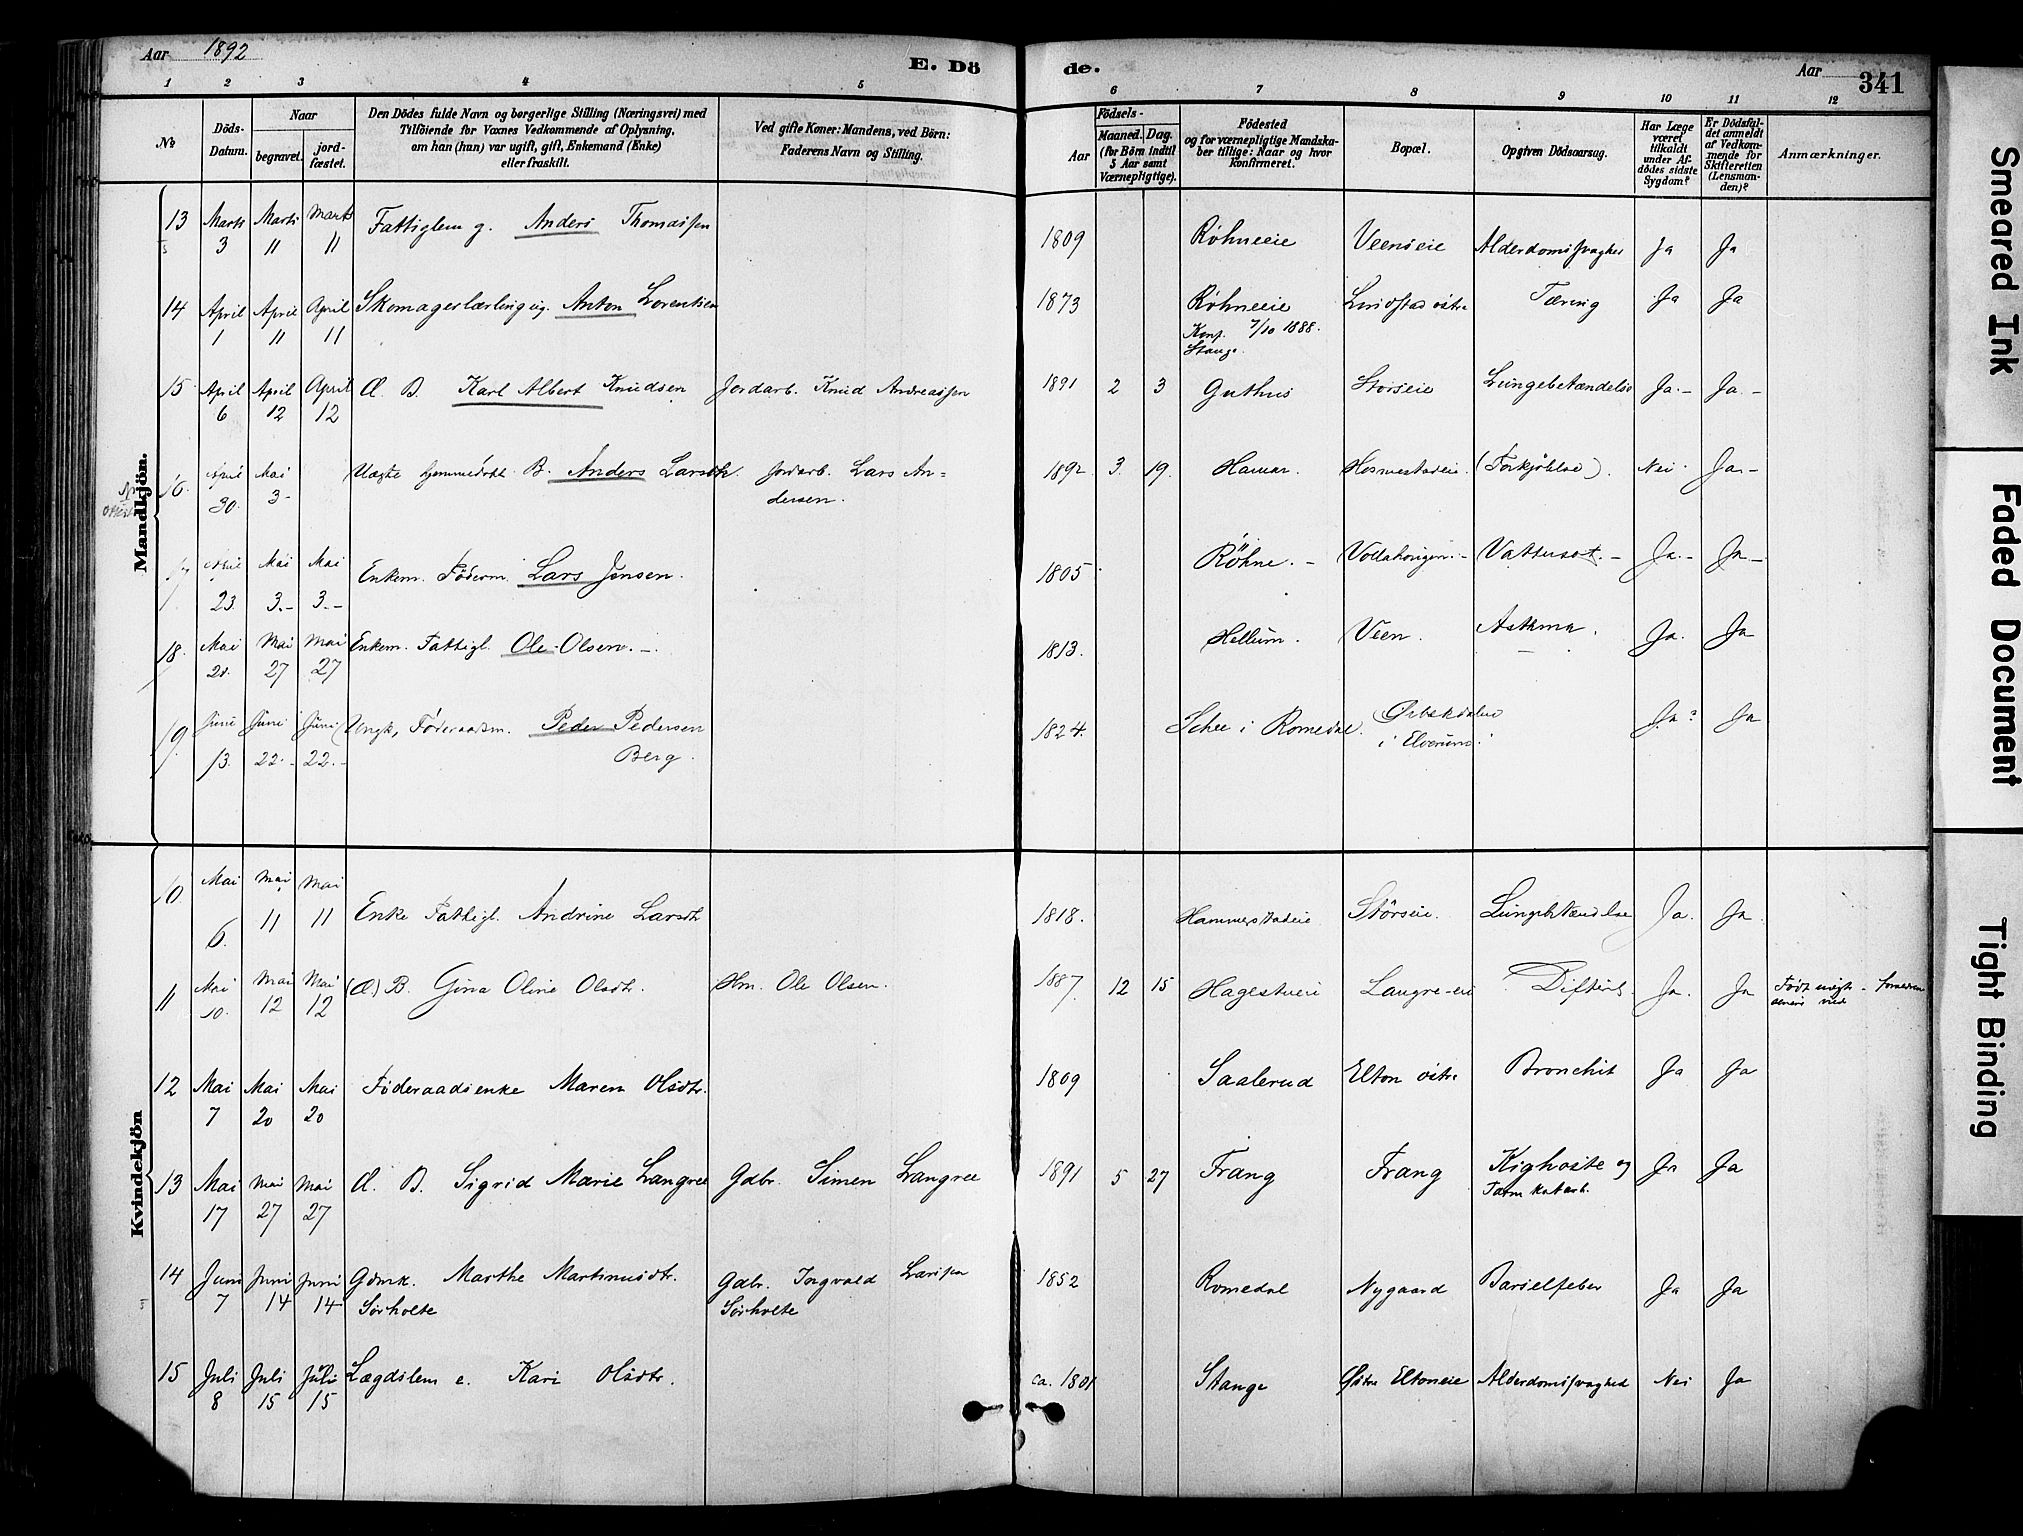 Aar 1892
E. Dö
de.
Aar
341
1 2 3 4 5 6 7 8 9 10 11 12
No
Döds-
Datum.
Naar
begravet.
jord-
fæstet.
Den Dödes fulde Navn og borgerlige Stilling (Næringsvei) med
Tilföiende for Voxnes Vedkommende af Oplysning,
om han (hun) var ugift, gift, Enkemand (Enke)
eller fraskilt.
Ved gifte Koner: Mandens, ved Börn:
Faderens Navn og Stilling.
Födsels-
Aar
Maaned.
Dag.
(for Börn indtil
5 Aar samt
Værnepligtige).
Födested
og for værnepligtige Mandska-
ber tillige: Naar og hvor
konfirmeret.
Bopæl.
Opgiven Dödsaarsag.
Har Læge
været
tilkaldt
under Af-
dödes sidste
Sygdom?
Er Dödsfal-
det anmeldt
af Vedkom-
mende for
Skifteretten
(Lensman-
den)?
Anmærkninger.
Mandkjön.
13 Marts 3 Marts 11 Marts 11 Fattiglem g. Anders Thomassen 1809 Röhneeie Veenseie Alderdomssvaghed Ja Ja
14 April 1 April 11 April 11 Skomagerlærling ug. Anton Lorentsen 1873 Röhneeie Lindstad östre Tæring Ja Ja
Konf. 7/10 1888.
Stange.
15 April 6 April 12 April 12 Æ. B. Karl Albert Knudsen Jordarb. Knud Andreassen 1891 2 3 Guthus Storseie Lungebetændelse Ja.- Ja.-
16. April 30. Mai 3- Uægte hjemmedöbt B. Anders Larsen. Jordarb. Lars An-
dersen.
1892 3. 19. Hamar. (Forkjölelse). Nei. Ja.-
17 April 23. Mai 3.- Mai 3.- Enkem. Föderm. Lars Jensen. 1805 Röhne.- Vattusot.- Ja.- Ja-
18. Mai Mai 27 Mai 27 Enkem. Fattigl. Ole Olsen.- 1813. Hellum. Veen. Asthma. Ja. Ja
19. Juni 13. Juni 22.- Juni 22.- Ungk, Föderaadsm. Peder Pedersen
Berg.
1824. i Romedal.
i Elverum.
Ja? Ja
Kvindekjön
10 Mai 6. Mai 11 Mai 11 Enke Fattigl. Andrine Larsdtr 1818. Hammerstadeie Störseie. Lungebetændelse Ja. Ja.
11 Mai 10. Mai 12 Mai 12 (Æ) B. Gina Oline Olsdtr. Hm. Ole Olsen. 1887. 12 15 Hagestueei Langre-ei Difterit. Ja. Ja Födt uægte
12 Mai 7 Mai 20 Mai 20 Föderaadsenke Maren Olsdtr. 1809 Saalerud Elton östre Bronchit Ja Ja
13 Mai 17 Mai 27 Mai 27 Æ. B. Sigrid Marie Langree Gdbr. Simen Langree 1891 5 27 Frang Frang Kighoste og
Tarmkatarh.
Ja Ja
14 Juni 7 Juni 14 Juni 14 Gdmk. Marthe Martinusdtr.
Sörholte
Gdbr. Ingvald Larsen
Sörholte
1852 Romedal Nygaard Barselfeber Ja Ja
15 Juli 8 Juli 15 Juli 15 Lægdslem e. Kari Olsdtr. ca. 1801 Stange Östre Eltoneie Alderdomssvaghed Nei Ja
Smeared Ink
Faded Document
Tight Binding